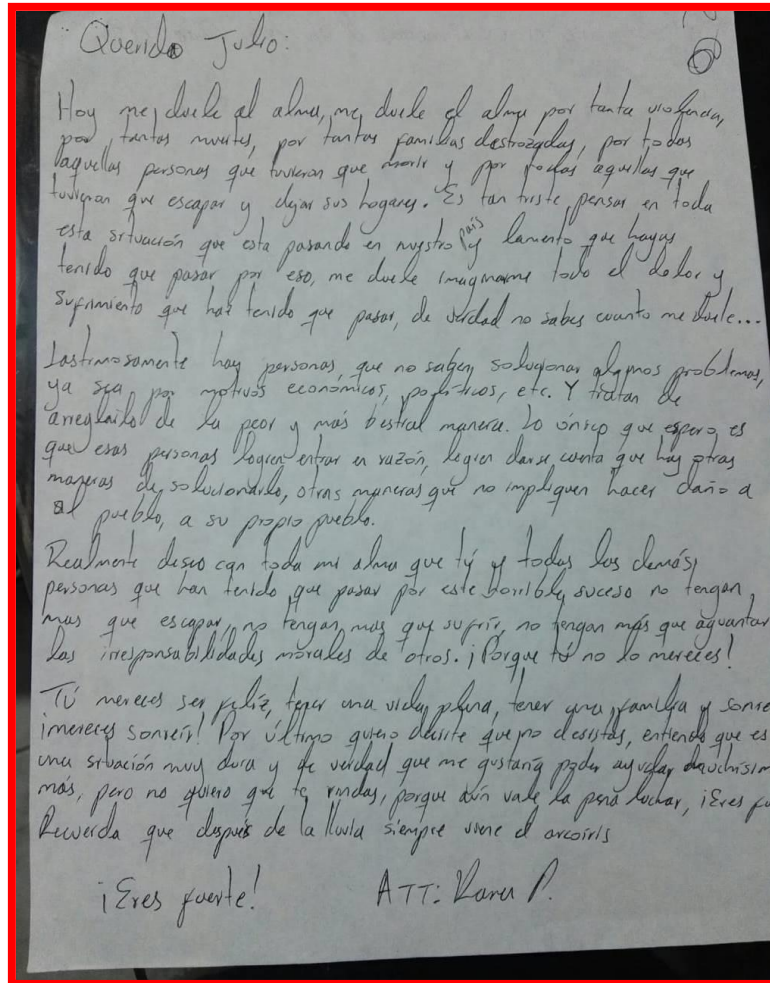 Querido Julio:
Hoy me duele el alma, me duele el alma por tanta violencia,
por tantas muertes, por tantas familias destrozadas, por todas
aquellas personas que tuvieron que morir y por todas aquellas que
tuvieron que escapar y dejar sus hogares. Es tan triste pensar en toda
esta situación que esta pasando en nuestro país y lamento que hayas
tenido que pasar por eso, me duele imaginarme todo el dolor y
sufrimiento que has tenido que pasar, de verdad no sabes cuanto me duele...
Lastimosamente hay personas, que no saben solucionar algunos problemas,
ya sea por motivos económicos, políticos, etc. Y tratan de
arreglarlo de la peor y más bestial manera. Lo único que espero, es
que esas personas logren entrar en razón, logren darse cuenta que hay otras
maneras de solucionarlo, otras maneras que no impliquen hacer daño a
el pueblo, a su propio pueblo.
Realmente deseo con toda mi alma que tú y todas las demás
personas que han tenido que pasar por este horrible suceso no tengan
mas que escapar, no tengan mas que sufrir, no tengan más que aguantar
las irresponsabilidades morales de otros. ¡Porque tú no lo mereces!
Tú mereces ser feliz, tener una vida plena, tener una familia y sonre
¡mereces sonreír! Por último quiero decirte que no desistas, entiendo que es
una situación muy dura y de verdad que me gustaría poder ayudar muchísim
más, pero no quiero que te rindas, porque aún vale la pena luchar, ¡Eres fu
Recuerda que después de la lluvia siempre viene el arcoiris
¡Eres fuerte! ATT: Karen P.